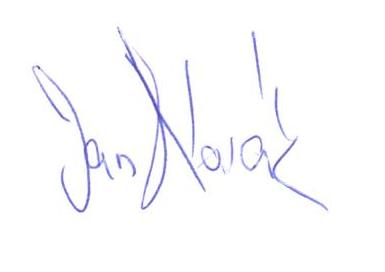 Jan Novák